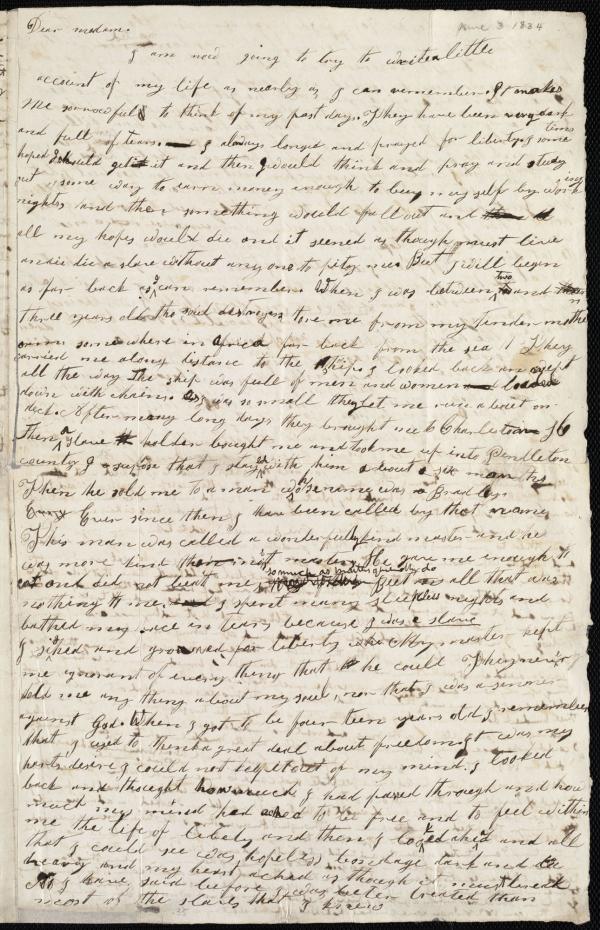 June 3 1834
Dear madam.
I am now going to try to write a little
account of my life as nearly as I can remember. It makes
me sorrowful to think of my past days. They have been very dark
and full of tears. I always longed and prayed for liberty & some times
hoped I should get it and then I would think and pray and study
out some way to earn money enough to buy my self by working
nights, and then something would fall out and
all my hopes would die and it seemed as though must live
and die a slave without any one to pity me. But I will begin
as far back as I can remember. When I was between two and
three years old the soul destroyers tore me from my tender mothers
arms some where in africa far back from the sea. They
carried me a long distance to the ship I looked back and wept
all the way. The ship was full of men and women loaded
down with chains. As I was so small they let me run about on
deck. After many long days they brought us to Charleston SC
Then a slave holder bought me and took me up into Pendleton
county I supose that I stayed with him about six months
Then he sold me to a man whose name was Bradley
Ever since then I have been called by that name
This man was called a wonderfully kind master and he
was more kind than most masters. He gave me enough to
eat and did not beat me so much as masters generally do But all that was
nothing to me. I spent many sleepless nights and
bathed my face in tears because I was a slave
I sihed and groaned for liberty My master kept
me ignorant of every thing that he could They never
told me any thing about my soul, nor that I was a sinner
against God. When I got to be four teen years old I remember
that I used to think a great deal about freedom It was my
harts desire I could not keep it out of my mind. I looked
back and thought how much I had pased through and how
much my mind had ached to be free and to feel within
me the life of liberty and then I looked ahed and all
that I could see was hopeless bondage dark and
heavy and my heart ached as though it must break
As I have said before I was better treated than
most of the slaves that I knew